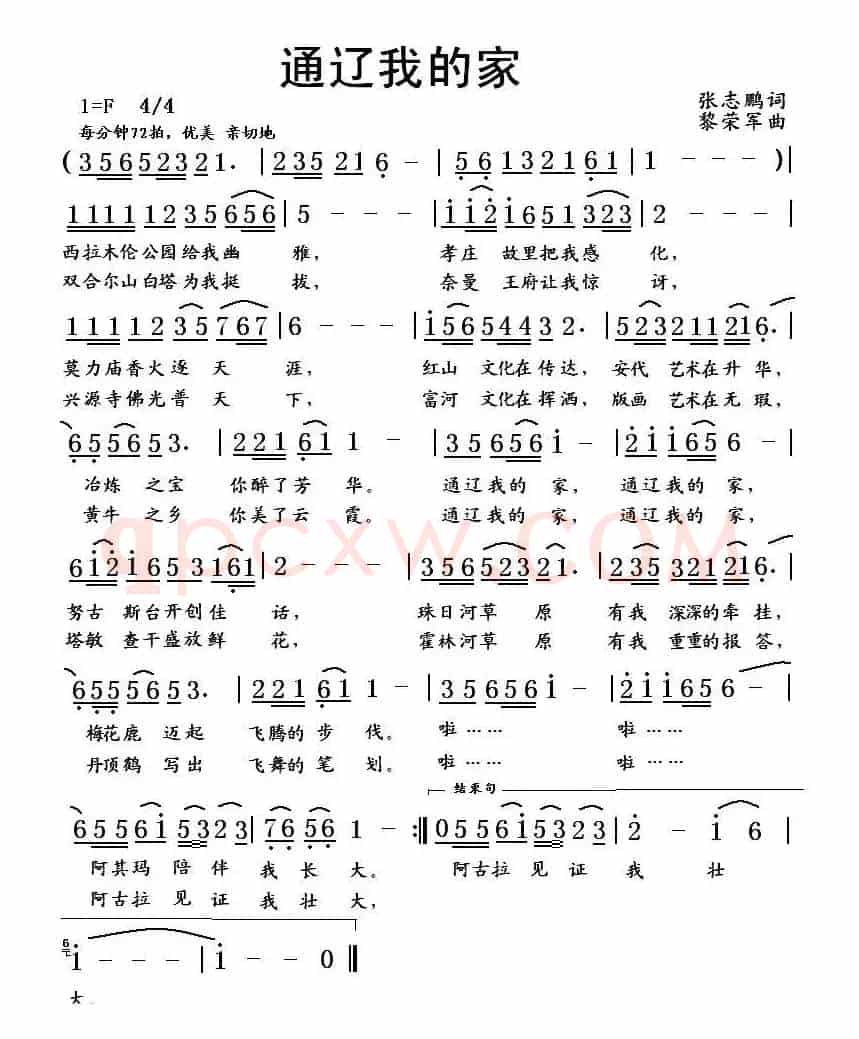 通辽我的家
1=F 4/4
张志鹏词
每分钟72拍，优美 亲切地
黎荣军曲
(35652321. | 235 216 - | 56132161 | 1 - - - )|
1111 1235656 | 5 - - - | 1121651323 | 2 - - - |
西拉木伦公园给我幽 雅， 孝庄 故里把我感 化，
双合尔山白塔为我挺 拔， 奈曼 王府让我惊 讶，
1111235767 | 6 - - - | 15654432. | 523211216. |
莫力庙香火逐 天 涯， 红山 文化在传达，安代 艺术在升华，
兴源寺佛光普 天 下， 富河 文化在挥洒，版画 艺术在无瑕，
6555653. | 221611 - | 356561 - | 211656 - |
冶炼 之宝 你醉了芳 华。 通辽我的 家， 通辽我的 家，
黄牛 之乡 你美了云 霞。 通辽我的 家， 通辽我的 家，
qpcxw.COM
6121653161 | 2 - - - | 35652321. | 235321216. |
努古 斯台开创佳 话， 珠日河草 原 有我 深深的牵挂，
塔敏 查干盛放鲜 花， 霍林河草 原 有我 重重的报答，
65555653. | 221611 - | 356561 - | 211656 - |
梅花鹿 迈起 飞腾的 步 伐。 啦…… 啦……
丹顶鹤 写出 飞舞的 笔 划。 啦…… 啦……
结束句
6556153 23 | 76561 - :‖ 0556153 23 | 2 - 1 6 |
阿其玛 陪 伴 我 长 大。 阿古拉 见 证 我 壮
阿古拉 见 证 我 壮 大，
6 1 - - - | 1 - - 0 ‖
大